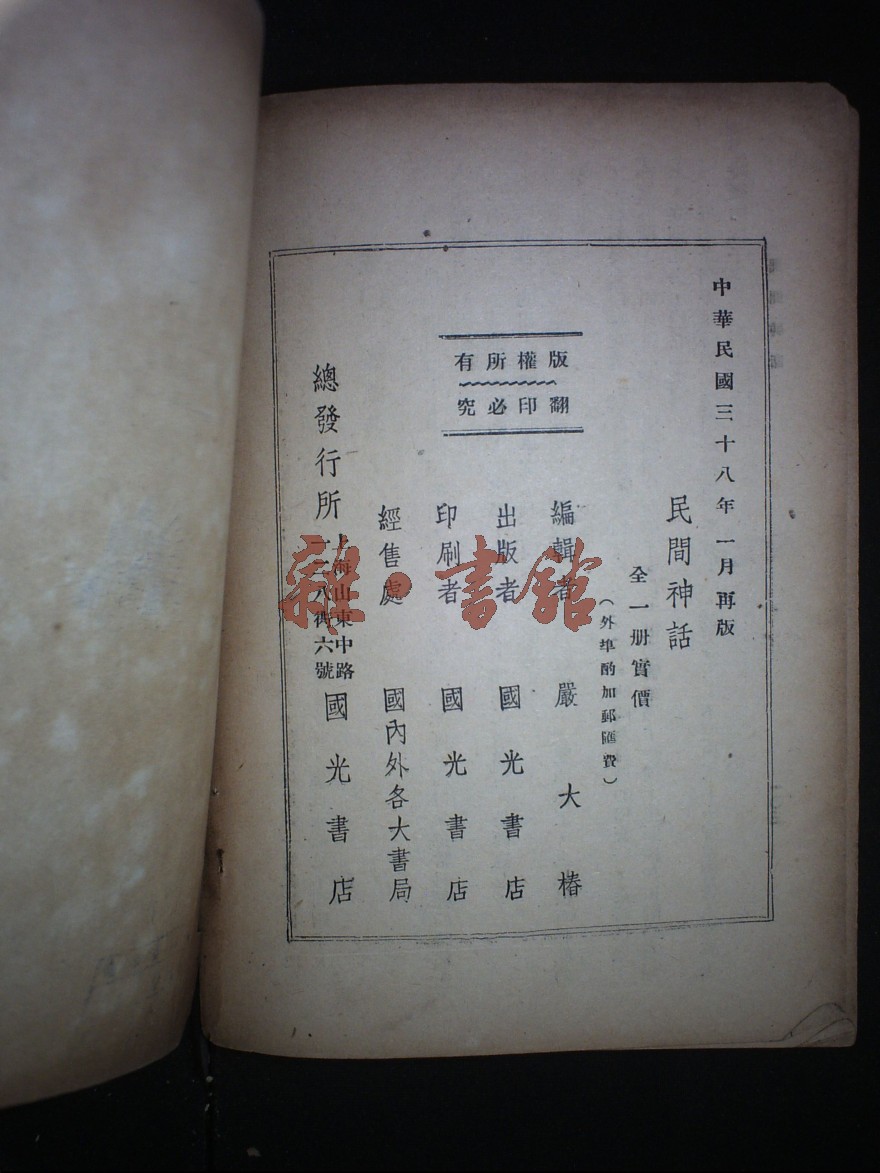 中華民國三十八年一月再版
民間神話
全一册實價
（外埠酌加郵匯費）
版權所有
翻印必究
編輯者 嚴大椿
出版者 國光書店
印刷者 國光書店
經售處 國內外各大書局
總發行所 上海山東中路
六號 國光書店
雜·書館